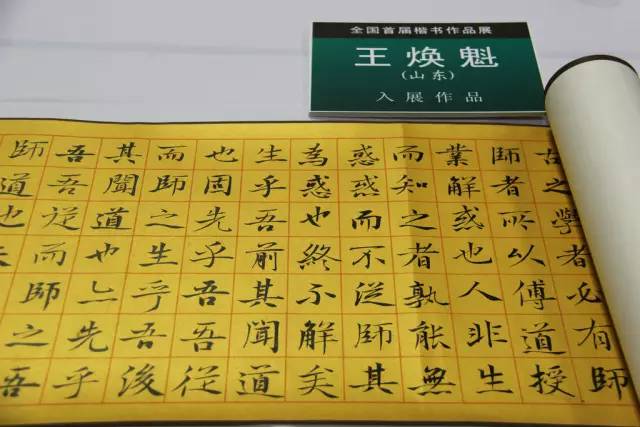 全国首届楷书作品展
王焕魁
(山东)
入展作品
古之學者必有師
師者所以傅道授
業解惑也人非生
而知之者孰能無
惑惑而不從師其
為惑也終不解矣
生乎吾前其聞道
也固先乎吾吾從
而師之生乎吾後
其聞道也亦先乎
吾吾從而師之吾
師道也